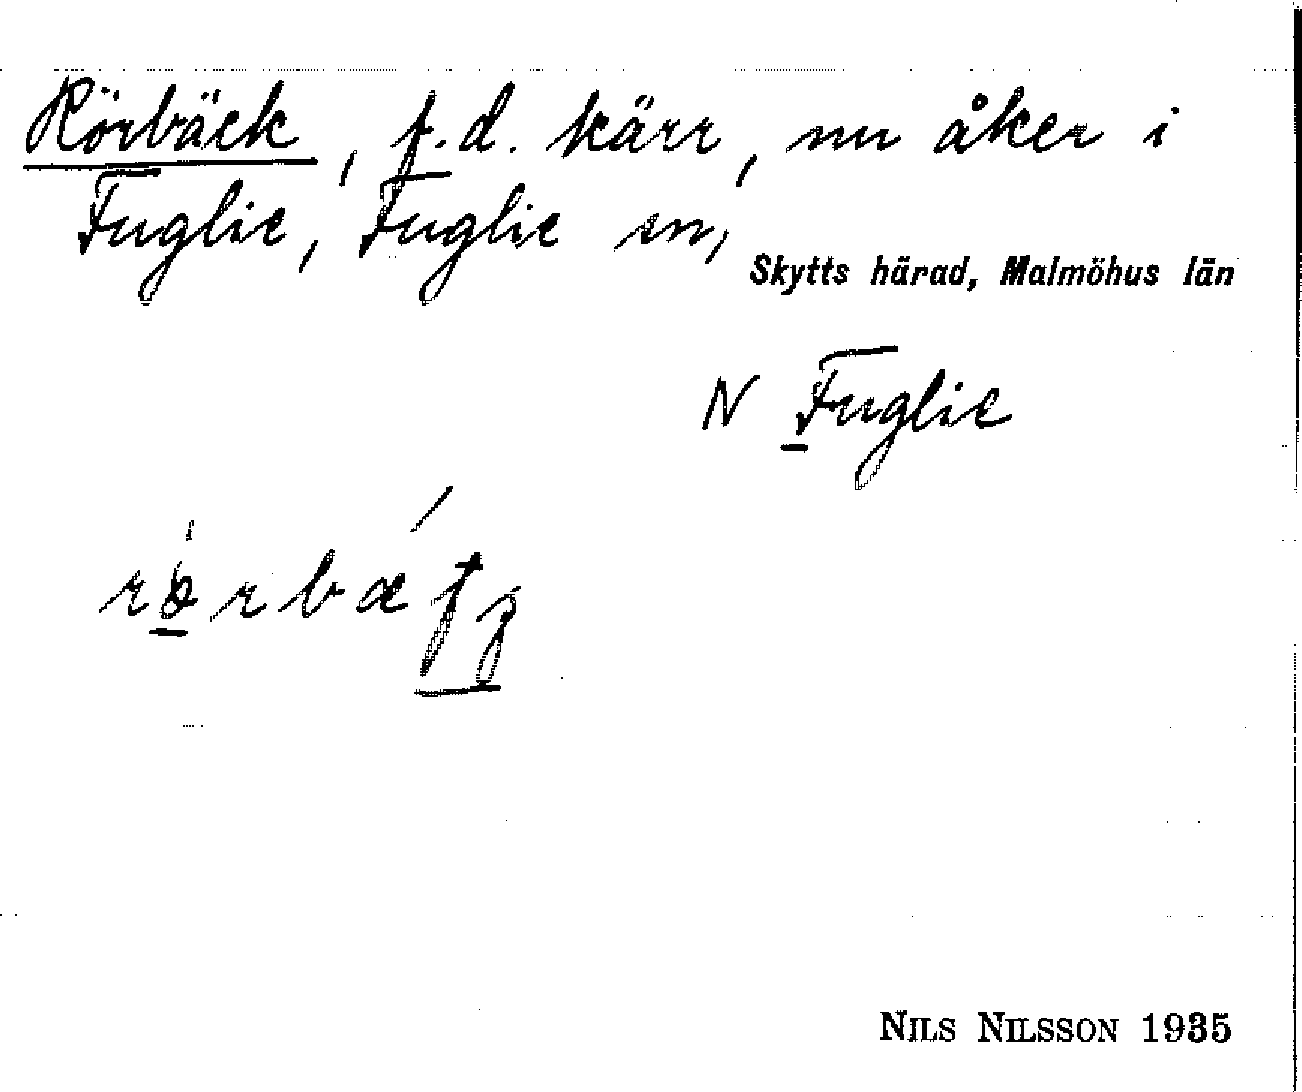 Rörbäck, f.d. kärr, nu åker i
Fuglie, Fuglie sn,
Skytts härad, Malmöhus län
N Fuglie
NILS NILSSON 1935